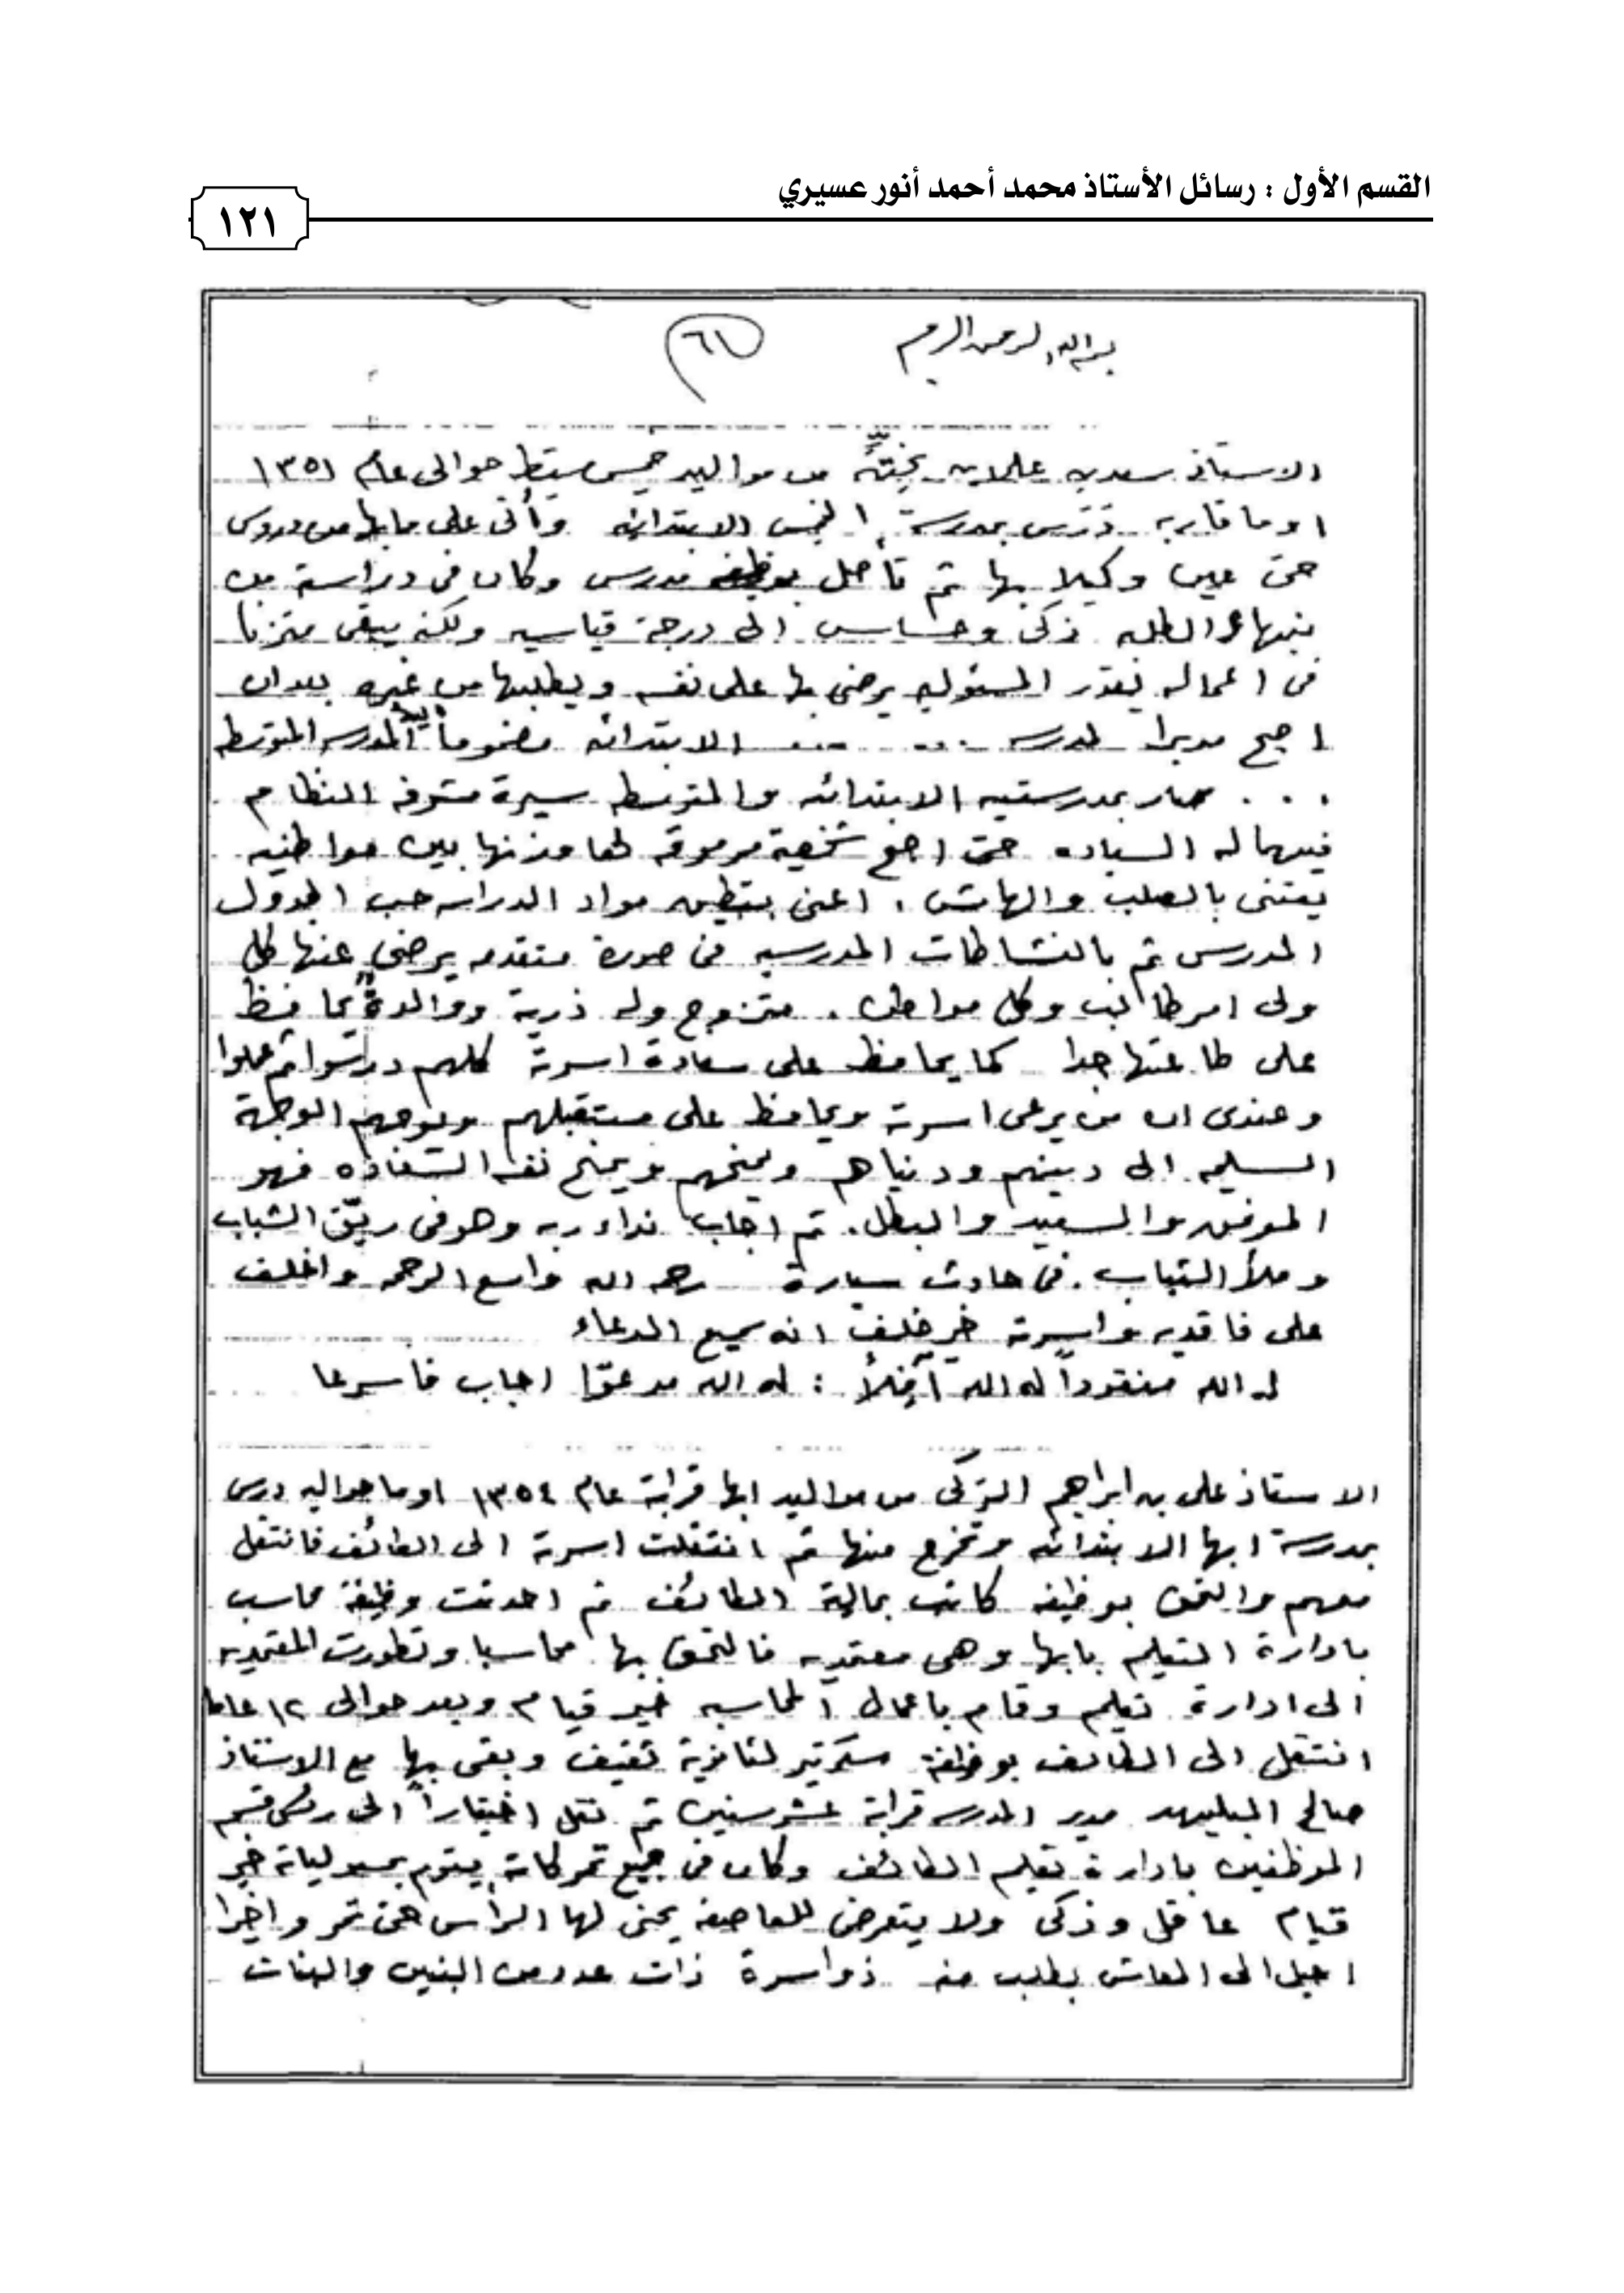 القسم الأول : رسائل الأستاذ محمد أحمد أنور عسيري
١٢١
بسم الله الرحمن الرحيم
٦١
الاستاذ سعد بن علي بن من مواليد خميس مشيط حوالى عام ١٣٥١
او ما قاربه درس بمدرسة الخميس الابتدائيه وأتى على ما بها من دروس
حتى عين وكيلا بها ثم تأهل بوظيفه مدرس وكان فى دراسته من
الطلبه ذكى وحساس الى درجة قياسيه ولكنه يبقى متزنا
فى اعماله يقدر المسئوليه يرضى بها على نفسه ويطلبها من غيره بعد ان
اصبح مديرا لمدرسه ... ... الابتدائيه مضموما اليها المدرسه المتوسطه
... سار بمدرستيه الابتدائيه والمتوسطه سيرة مشرفه النظام
فيهما له السياده حتى اضحى شخصية مرموقه لها وزنها بين مواطنيه
يعتنى بالصلب والهامش . اعنى بتطبيق مواد الدراسه حسب الجدول
المدرسى ثم بالنشاطات المدرسيه فى صورة متقدمه يرضى عنها كل
ولى امر طالب وكل مواطن . متزوج وله ذرية ووالدة يحافظ
على طاعتها جدا كما يحافظ على سعادة اسرته كلهم درسوا ثم عملوا
وعندى ان من يرعى اسرته ويحافظ على مستقبلهم ويوجههم الوجهة
السليمه الى دينهم ودنياهم ويمنحهم ويمنح نفسه السعاده فهو
الموفق والسعيد والبطل . ثم اجاب نداء ربه وهو فى ريّق الشباب
وملأ الشباب . فى حادث سيارة رحمه الله واسع الرحمه واخلف
على فاقديه واسرته خير خلف انه سميع الدعاء
له الله مفقوداً له الله آفلاً : له الله مدعوّا اجاب فاسرعا
الاستاذ على بن ابراهيم التركى من مواليد ابها قرابة عام ١٣٥٤ او ما حواليه درس
بمدرسة ابها الابتدائيه وتخرج منها ثم انتقلت اسرته الى الطائف فانتقل
معهم والتحق بوظيفه كاتب بمالية الطائف ثم احدثت وظيفة محاسب
بادارة التعليم بابها وهى معتمديه فالتحق بها محاسبا وتطورت المعتمديه
الى ادارة تعليم وقام باعمال المحاسبه خير قيام وبعد حوالى ١٢ عاما
انتقل الى الطائف بوظيفة سكرتير لثانوية ثقيف وبقى بها مع الاستاذ
صالح المدرسه قرابة عشر سنين ثم نقل اختياراً الى رئيس قسم
الموظفين بادارة تعليم الطائف وكان فى جميع تحركاته يقوم بمسولياته خير
قيام عاقل وذكى ولا يتعرض للعاصفه يحنى لها الرأس حتى تمر واخيرا
احيل الى المعاش بطلب منه ذو اسرة ذات عدد من البنين والبنات